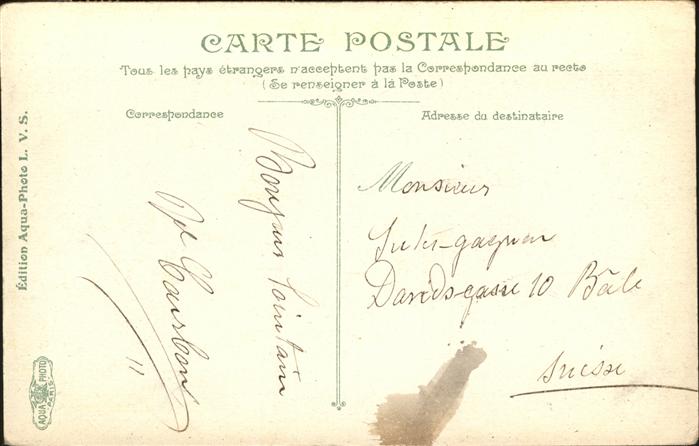 CARTE POSTALE
Tous les pays étrangers n'acceptent pas la Correspondance au recto
(Se renseigner à la Poste)
Correspondance
Adresse du destinataire
Édition Aqua-Photo L. V. S.
Bonjour lointain
Courbon
11
Monsieur
Jules-gagneur
Davidsgasse 10 Bâle
Suisse
AQUA PHOTO
PARIS